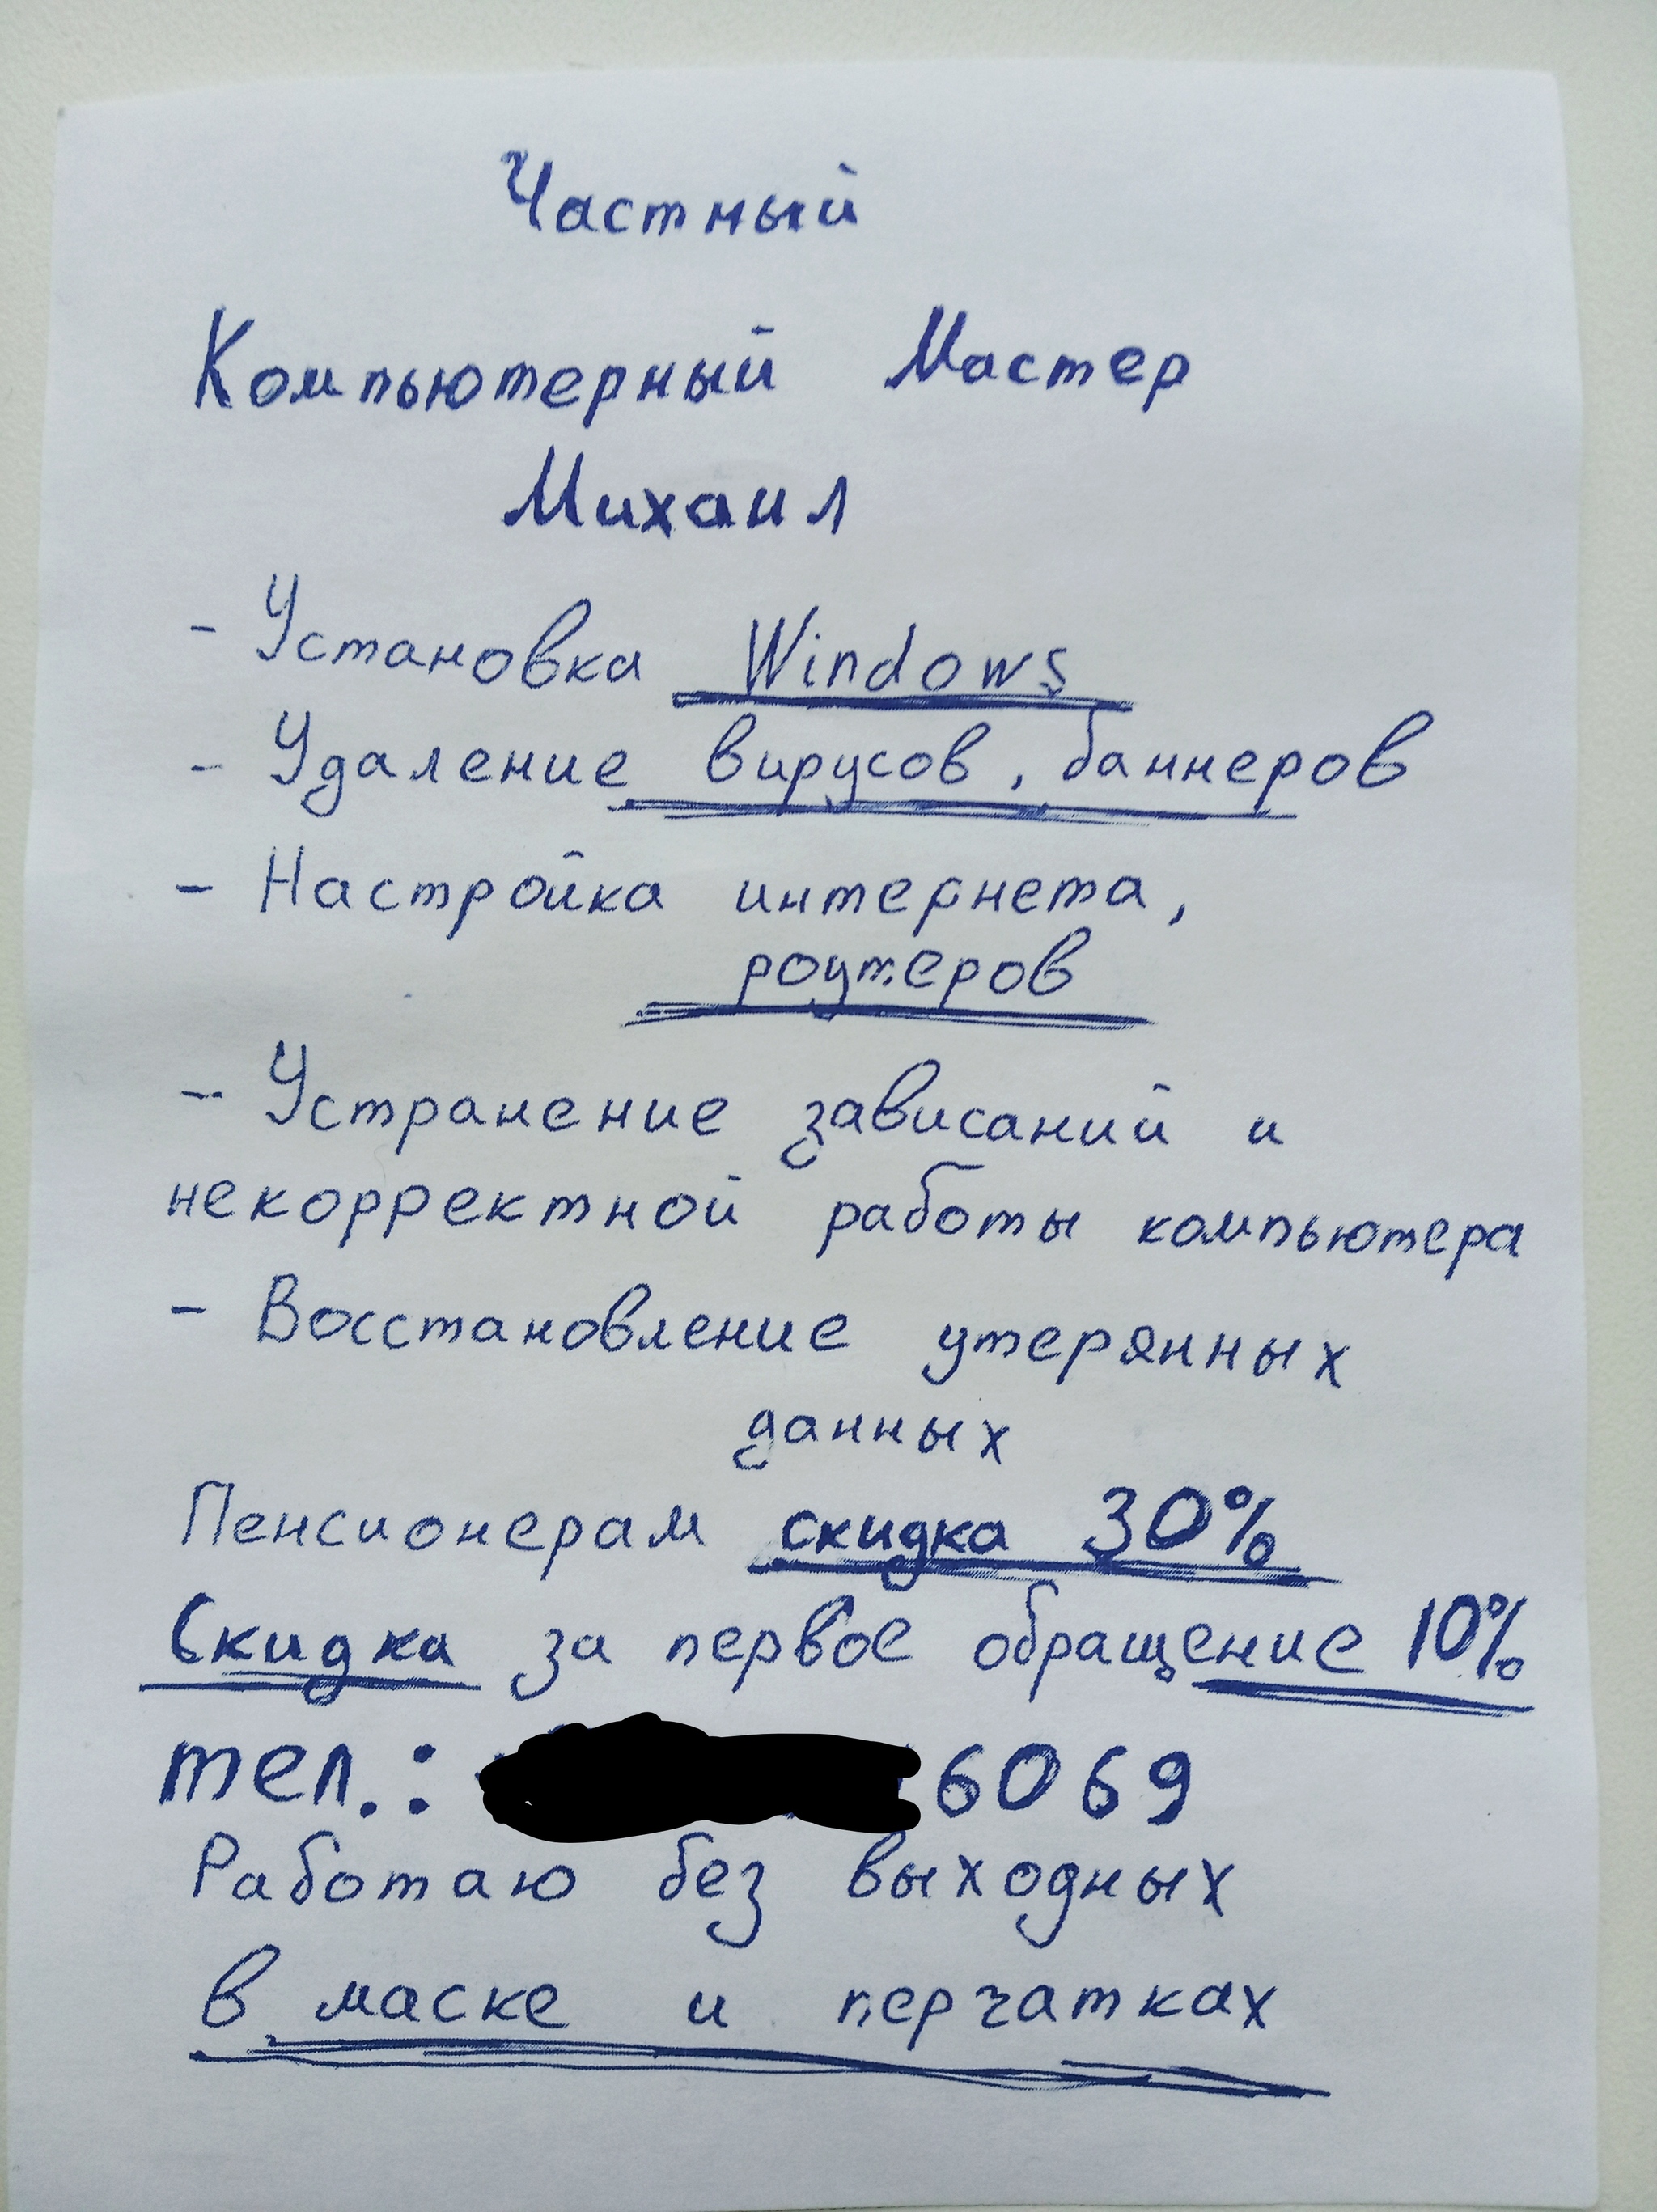 Частный
Компьютерный Мастер
Михаил
- Установка Windows
- Удаление вирусов, баннеров
- Настройка интернета,
роутеров
- Устранение зависаний и
некорректной работы компьютера
- Восстановление утерянных
данных
Пенсионерам скидка 30%
Скидка за первое обращение 10%
тел.: 6069
Работаю без выходных
в маске и перчатках